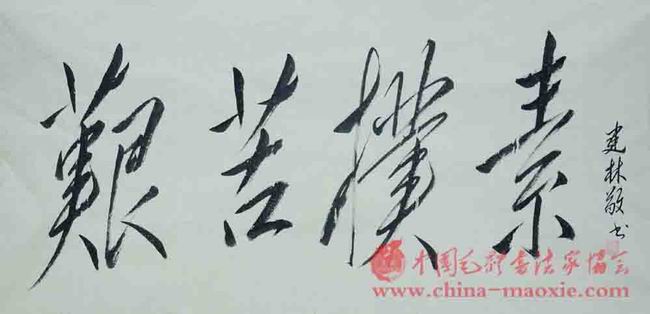 艱苦樸素
建林敬书
中国毛体书法家协会
www.china-maoxie.com